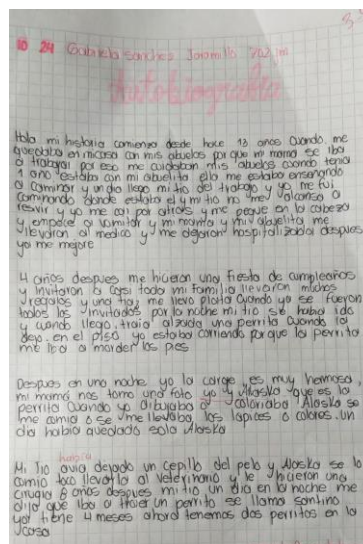 10 24 Gabriela Sanchez Jaramillo 702 jm
Autobiografia
Hola mi historia comienza desde hace 13 años Cuando me
quedaba en mi casa con mis abuelos por que mi mamá se iba
a trabajar por eso me cuidaban mis abuelos cuando tenia
1 año estaba con mi abuelita ella me estaba ensañando
a caminar y un dia llego mi tio del trabajo y yo me fui
caminando donde estaba el y mi tio no me alcanso a
resvir y yo me cai por atras y me pegue en la cabeza
y empece a vomitar y mi mamá y mi abuelita me
llevaron a medico y me dejaron hospitalizada despues
ya me mejore
4 años despues me hicieron una fiesta de cumpleaños
y invitaron a casi toda mi familia llevaron muchos
regalos y una tia me llevo plata Cuando ya se fueron
todos los invitados por la noche mi tio se habia ido
y cuando llego traia alzada una perrita Cuando la
dejo en el piso yo estaba corriendo porque la perrita
me iba a morder los pes
Despues en una noche yo la carge es muy hermosa
mi mamá nos tomo una foto yo y Alaska que es la
perrita Cuando yo dibujaba o coloriaba Alaska se
me comia o se me llevaba los lapices o colores. un
dia habia quedado sola Alaska
Mi Tio avia dejado un cepillo del pelo y Alaska se lo
comio toco llevarla al veterinario y le hicieron una
cirugia 8 años despues mi tio un dia en la noche me
dijo que iba a traer un perrito se llama santino
ya tiene 4 meses ahora tenemos dos perritos en la
casa